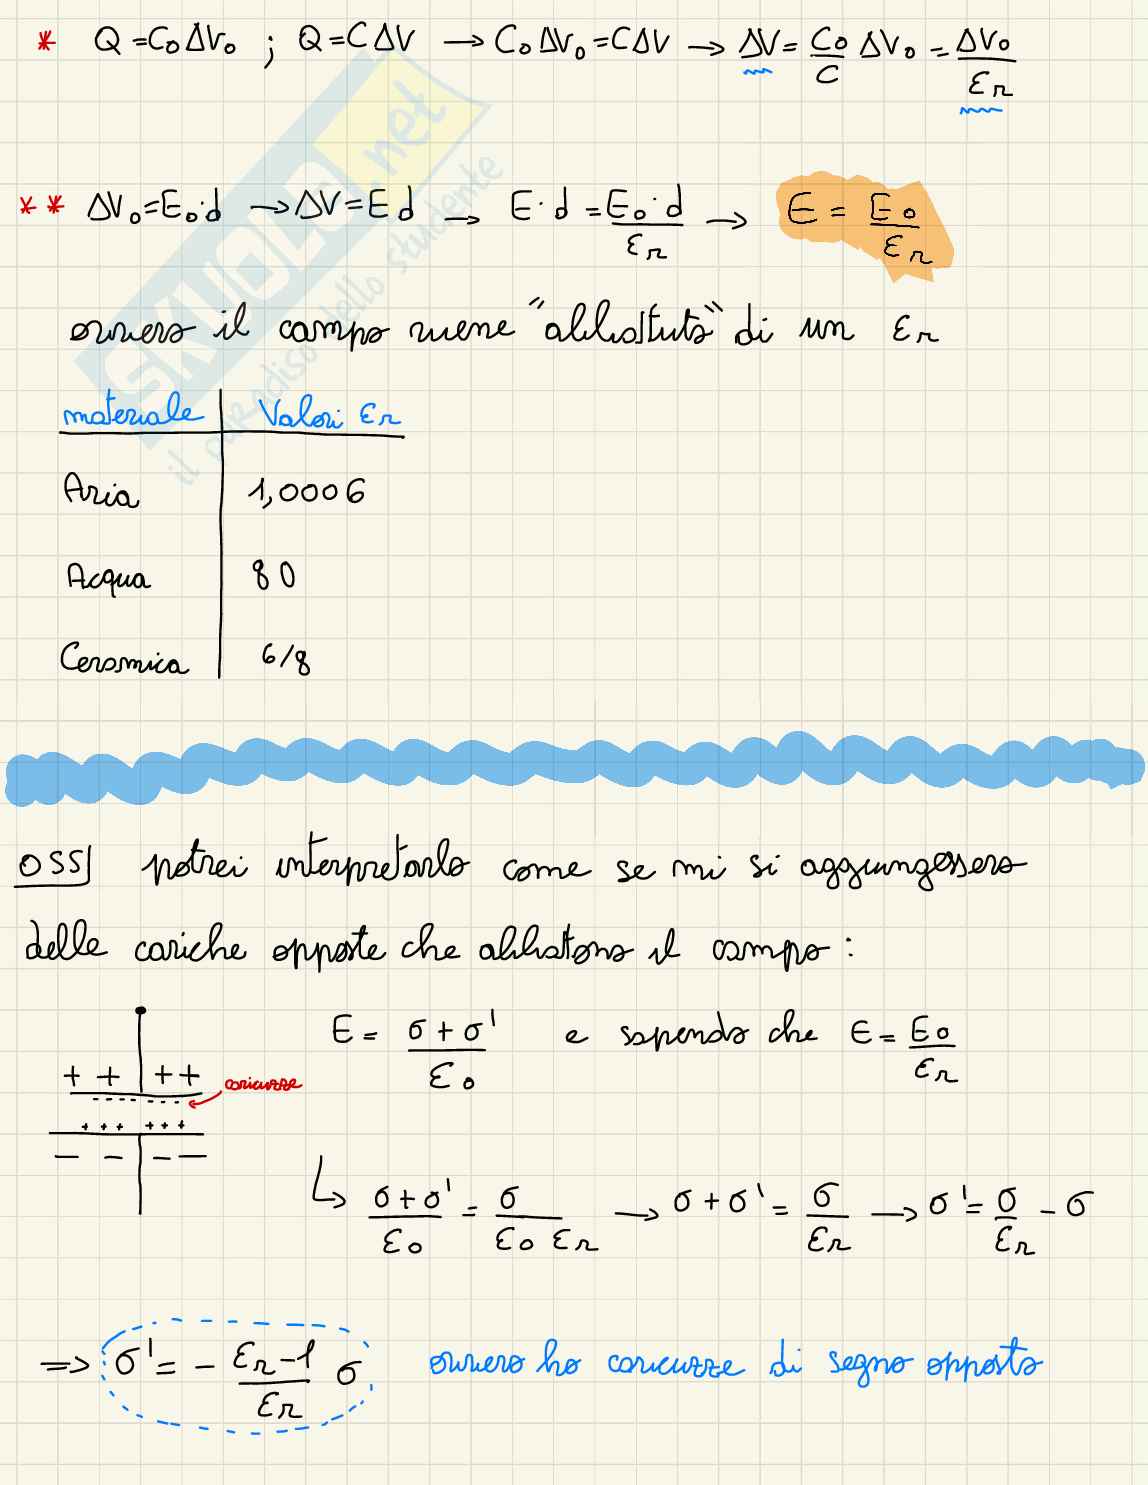 * Q=C₀ΔV₀ ; Q=CΔV → C₀ΔV₀=CΔV → ΔV= C₀/C ΔV₀ = ΔV₀/εr
** ΔV₀=E₀·d → ΔV=E d → E·d = E₀·d/εr → E = E₀/εr
ovvero il campo viene "abbattuto" di un εr
materiale Valori εr
Aria 1,0006
Acqua 80
Ceramica 6/8
OSS potrei interpretarlo come se mi si aggiungessero
delle cariche opposte che abbattono il campo:
E = σ+σ'/ε₀ e sapendo che E = E₀/εr
+ + + +
caricuzze
+ + + + + +
− − − −
σ+σ'/ε₀ = σ/ε₀ εr → σ+σ' = σ/εr → σ' = σ/εr − σ
⇒ σ' = − εr−1/εr σ ovvero ho caricuzze di segno opposto
SKUOLA.net
il paradiso dello studente